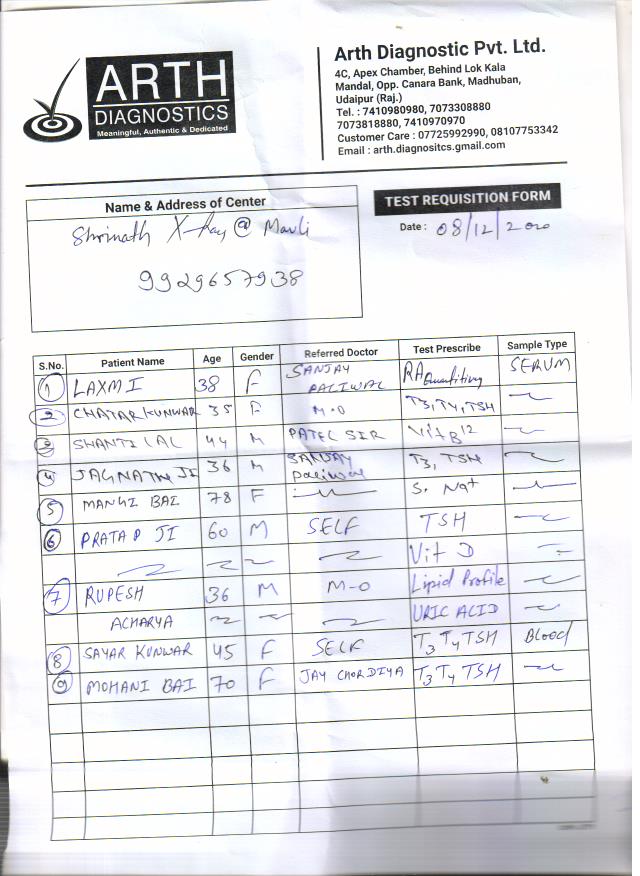 ARTH
DIAGNOSTICS
Meaningful, Authentic & Dedicated
Arth Diagnostic Pvt. Ltd.
4C, Apex Chamber, Behind Lok Kala
Mandal, Opp. Canara Bank, Madhuban,
Udaipur (Raj.)
Tel. : 7410980980, 7073308880
7073818880, 7410970970
Customer Care : 07725992990, 08107753342
Email : arth.diagnositcs.gmail.com
Name & Address of Center
Shrinath X-Ray @ Mavli
9929657938
TEST REQUISITION FORM
Date : 08/12/2020
S.No. Patient Name Age Gender Referred Doctor Test Prescribe Sample Type
1 LAXMI 38 F SANJAY PALIWAL RA SERUM
2 CHATAR KUNWAR 35 F M.O T3, T4, TSH
3 SHANTI LAL 44 M PATEL SIR Vit B12
4 JAGNATH JI 36 M SANJAY paliwal T3, TSH
5 MANGI BAI 78 F S. Na+
6 PRATAP JI 60 M SELF TSH
Vit D
7 RUPESH 36 M M-O Lipid Profile
ACHARYA URIC ACID
8 SAYAR KUNWAR 45 F SELF T3 T4 TSH Blood
9 MOHANI BAI 70 F JAY CHORDIYA T3 T4 TSH